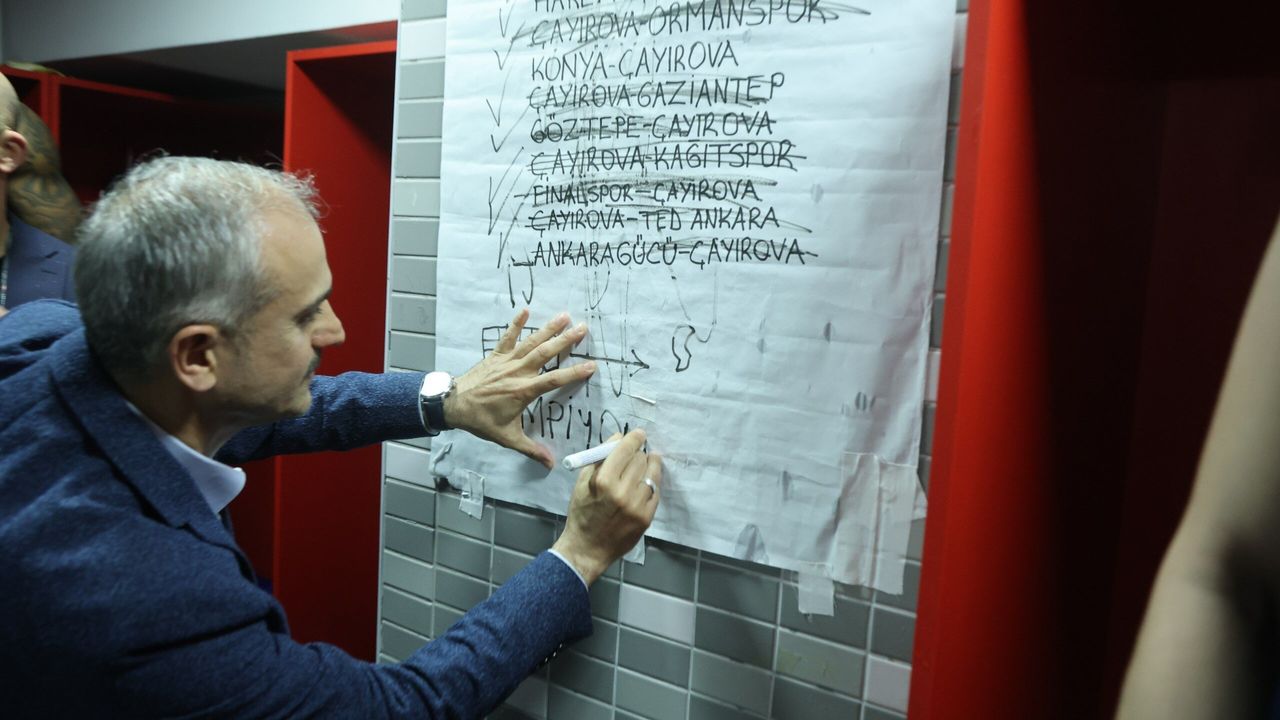 ÇAYIROVA-ORMANSPOR
KONYA-ÇAYIROVA
ÇAYIROVA-GAZİANTEP
GÖZTEPE-ÇAYIROVA
ÇAYIROVA-KAGITSPOR
FİNALSPOR-ÇAYIROVA
ÇAYIROVA-TED ANKARA
ANKARAGÜCÜ-ÇAYIROVA
MPİYO